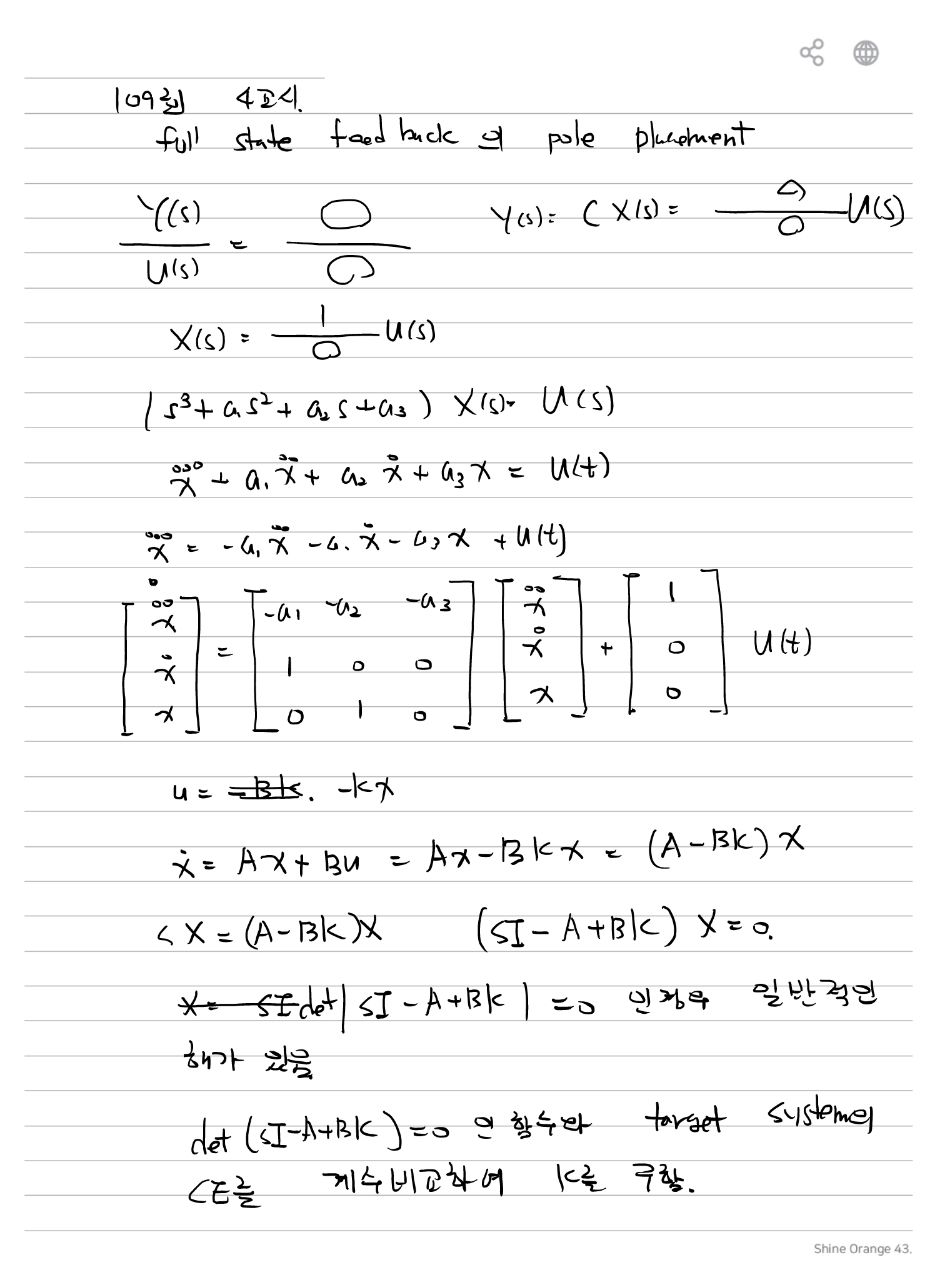 109회 4교시.
full state feedback의 pole placement
Y(s)/U(s) = ○/○ Y(s) = C X(s) = ○/○ U(s)
X(s) = 1/○ U(s)
(s³ + a₁s² + a₂s + a₃) X(s) = U(s)
x⃛ + a₁ẍ + a₂ẋ + a₃x = U(t)
x⃛ = -a₁ẍ - a.ẋ - a₃x + U(t)
[ẍ ẋ x]˙ = [-a₁ -a₂ -a₃; 1 0 0; 0 1 0] [ẍ ẋ x] + [1 0 0] U(t)
u = -Bk. -kx
ẋ = Ax + Bu = Ax - Bkx = (A-BK)x
s X = (A-BK)X (SI - A + BK) X = 0.
X = SI det|SI - A + BK| = 0 인 경우 일반적인
해가 있음
det (SI-A+BK) = 0 인 함수와 target system의
CE를 계수비교하여 K를 구함.
Shine Orange 43.